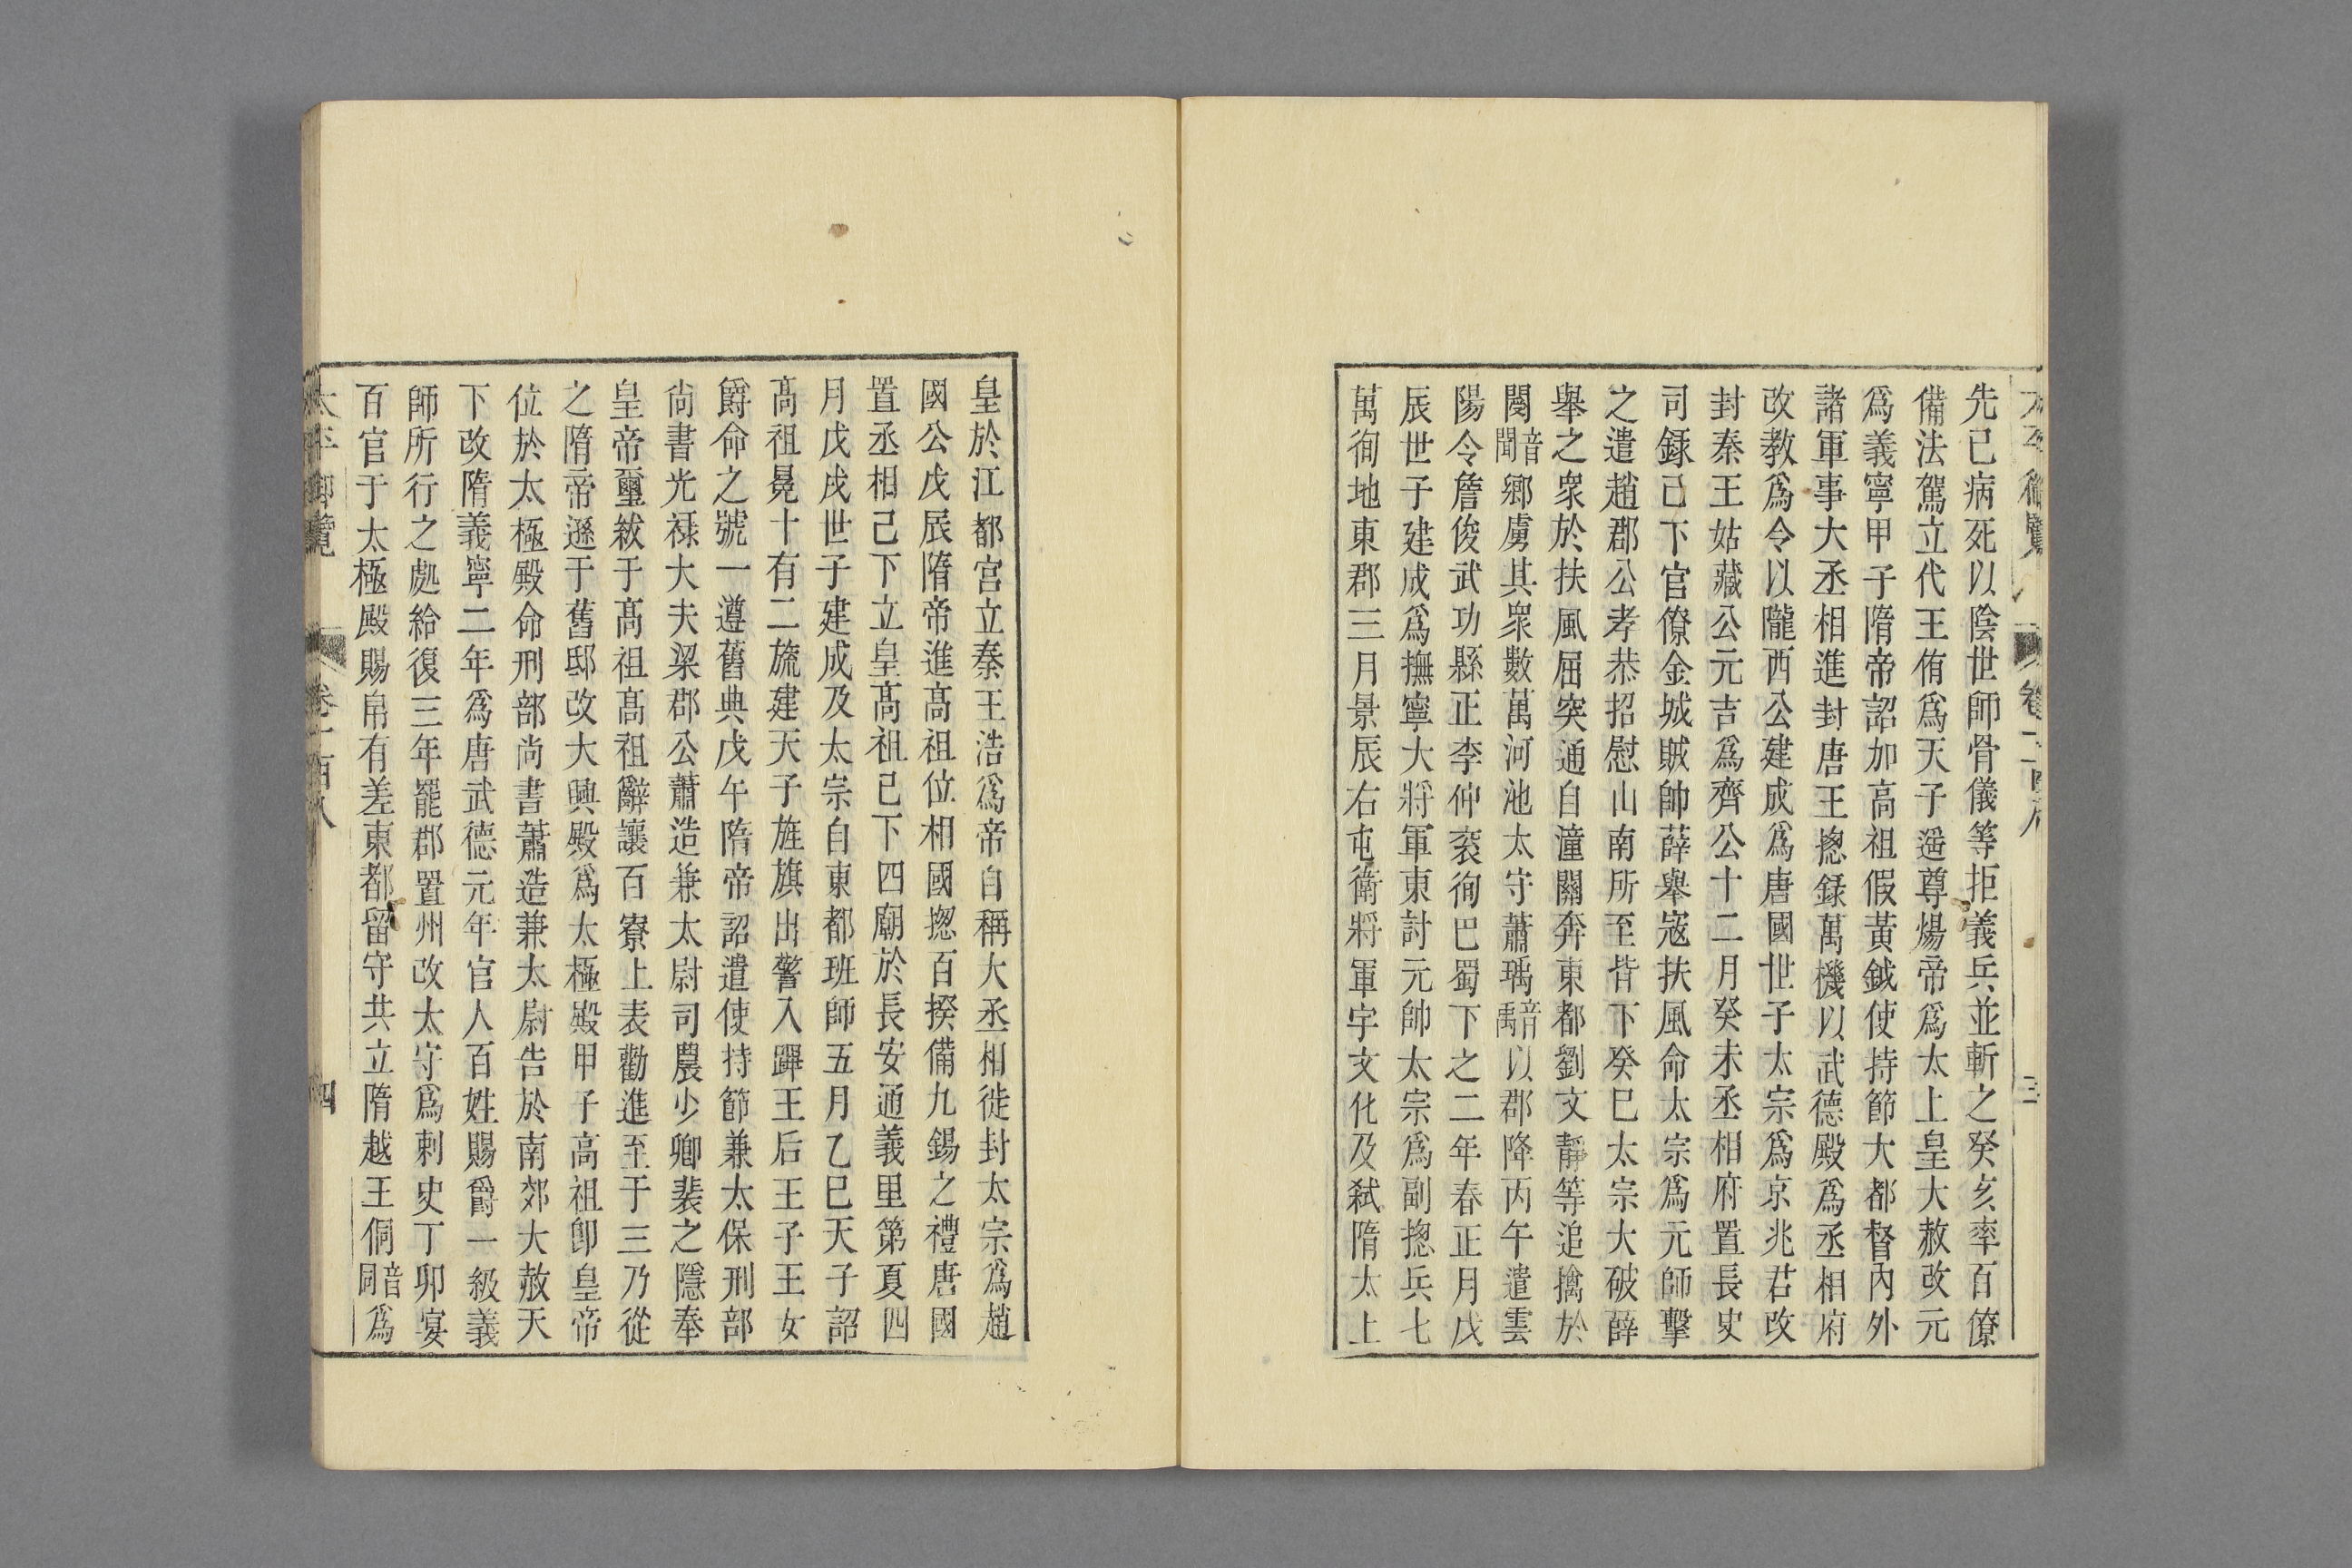 先已病死以陰世師骨儀等拒義兵並斬之癸亥率百僚
備法駕立代王侑爲天子遥尊煬帝爲太上皇大赦改元
爲義寧甲子隋帝詔加高祖假黃鉞使持節大都督內外
諸軍事大丞相進封唐王揔錄萬機以武德殿爲丞相府
改教爲令以隴西公建成爲唐國世子太宗爲京兆君改
封秦王姑藏公元吉爲齊公十二月癸未丞相府置長史
司錄已下官僚金城賊帥薛舉寇扶風命太宗爲元師擊
之遣趙郡公孝恭招慰山南所至皆下癸巳太宗大破薛
舉之衆於扶風屈突通自潼關奔東都劉文靜等追擒於
閿音聞鄉虜其衆數萬河池太守蕭瑀音禹以郡降丙午遣雲
陽令詹俊武功縣正李仲衮徇巴蜀下之二年春正月戊
辰世子建成爲撫寧大將軍東討元帥太宗爲副揔兵七
萬徇地東郡三月景辰右屯衛將軍宇文化及弑隋太上
皇於江都宮立秦王浩爲帝自稱大丞相徙封太宗爲趙
國公戊辰隋帝進高祖位相國揔百揆備九錫之禮唐國
置丞相已下立皇高祖已下四廟於長安通義里第夏四
月戊戌世子建成及太宗自東都班師五月乙巳天子詔
高祖冕十有二旒建天子旌旗出警入蹕王后王子王女
爵命之號一遵舊典戊午隋帝詔遣使持節兼太保刑部
尚書光祿大夫梁郡公蕭造兼太尉司農少卿裴之隱奉
皇帝璽紱于高祖高祖辭讓百寮上表勸進至于三乃從
之隋帝遜于舊邸改大興殿爲太極殿甲子高祖卽皇帝
位於太極殿命刑部尚書蕭造兼太尉告於南郊大赦天
下改隋義寧二年爲唐武德元年官人百姓賜爵一級義
師所行之處給復三年罷郡置州改太守爲刺史丁卯宴
百官于太極殿賜帛有差東都留守共立隋越王侗音同爲
太平御覽 卷一百八 四